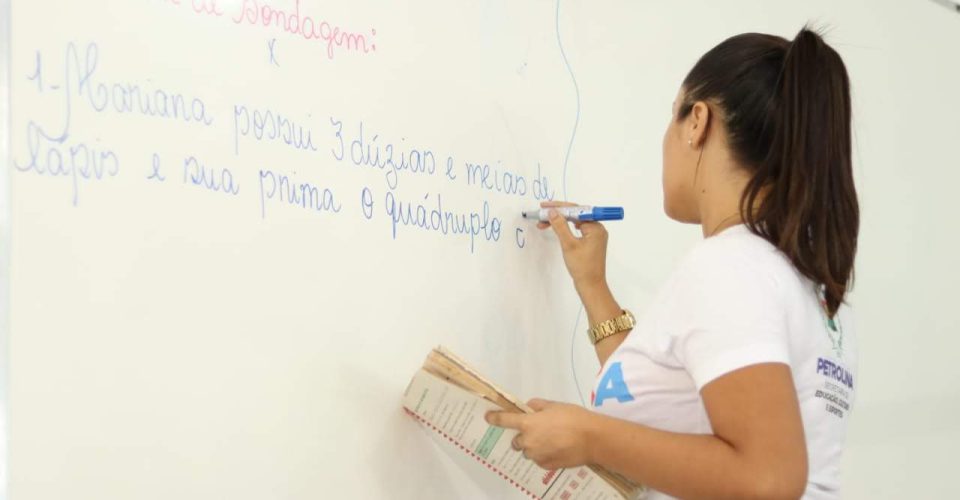 de Sondagem:
x
1- Mariana possui 3 dúzias e meias de
lápis e sua prima o quádruplo c
A
PETROLINA
SECRETARIA DE
EDUCAÇÃO, CULTURA
E ESPORTES